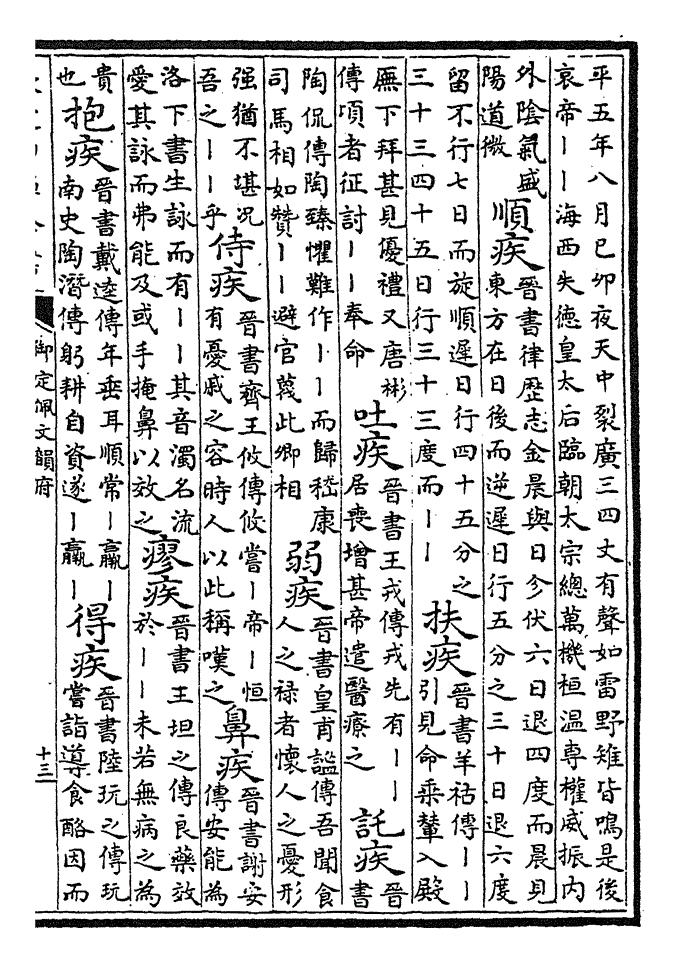 平五年八月己卯夜天中裂廣三四丈有聲如雷野雉皆鳴是後
哀帝丨丨海西失德皇太后臨朝太宗總萬機桓溫專權威振内
外陰氣盛
陽道微
順疾
晉書律歷志金晨與日今伏六日退四度而晨見
東方在日後而逆遲日行五分之三十日退六度
留不行七日而旋順遲日行四十五分之
三十三四十五日行三十三度而丨丨
扶疾
晉書羊祜傳丨丨
引見命乘輦入殿
廡下拜甚見優禮又唐彬
傳頃者征討丨丨奉命
吐疾
晉書王戎傳戎先有丨丨
居喪增甚帝遣醫療之
託疾
晉
書
陶侃傳陶臻懼難作丨丨而歸嵇康
司馬相如贊丨丨避官蔑此卿相
弱疾
晉書皇甫謐傳吾聞食
人之祿者懷人之憂形
强猶不堪况
吾之丨丨乎
侍疾
晉書齊王攸傳攸嘗丨帝丨恒
有憂戚之容時人以此稱嘆之
鼻疾
晉書謝安
傳安能為
洛下書生詠而有丨丨其音濁名流
愛其詠而弗能及或手掩鼻以效之
瘳疾
晉書王坦之傳良藥效
於丨丨未若無病之為
貴
也
抱疾
晉書戴逵傳年垂耳順常丨羸丨
南史陶潛傳躬耕自資遂丨羸丨
得疾
晉書陸玩之傳玩
嘗詣導食酪因而
御定佩文韻府
十三